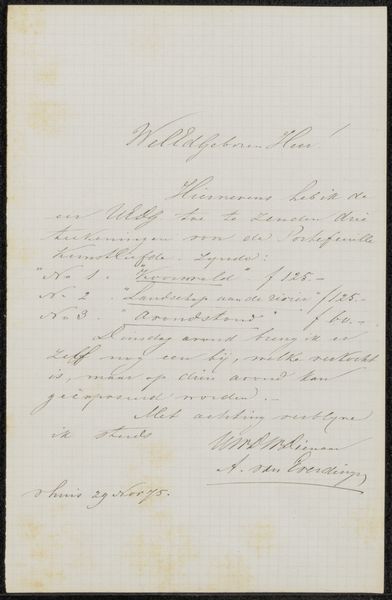 WelEdGeboren Heer!
Hiernevens heb ik de
eer UEdG toe te zenden drie
teekeningen voor de Portefeuille
Kunstliefde. Zynde:
"No 1. "Korenveld" f 125.-
No 2 "Landschap aan de rivier" f 125.-
No 3. "Avondstond" f 60.-
Dinsdag avond breng ik er
zelf nog een bij, welke verkocht
is, maar op dien avond kan
geëxposeerd worden.
Met achting verblyve
ik steeds
UwEdDwDienaar
A. van Everdingen
thuis 29 Nov 75.